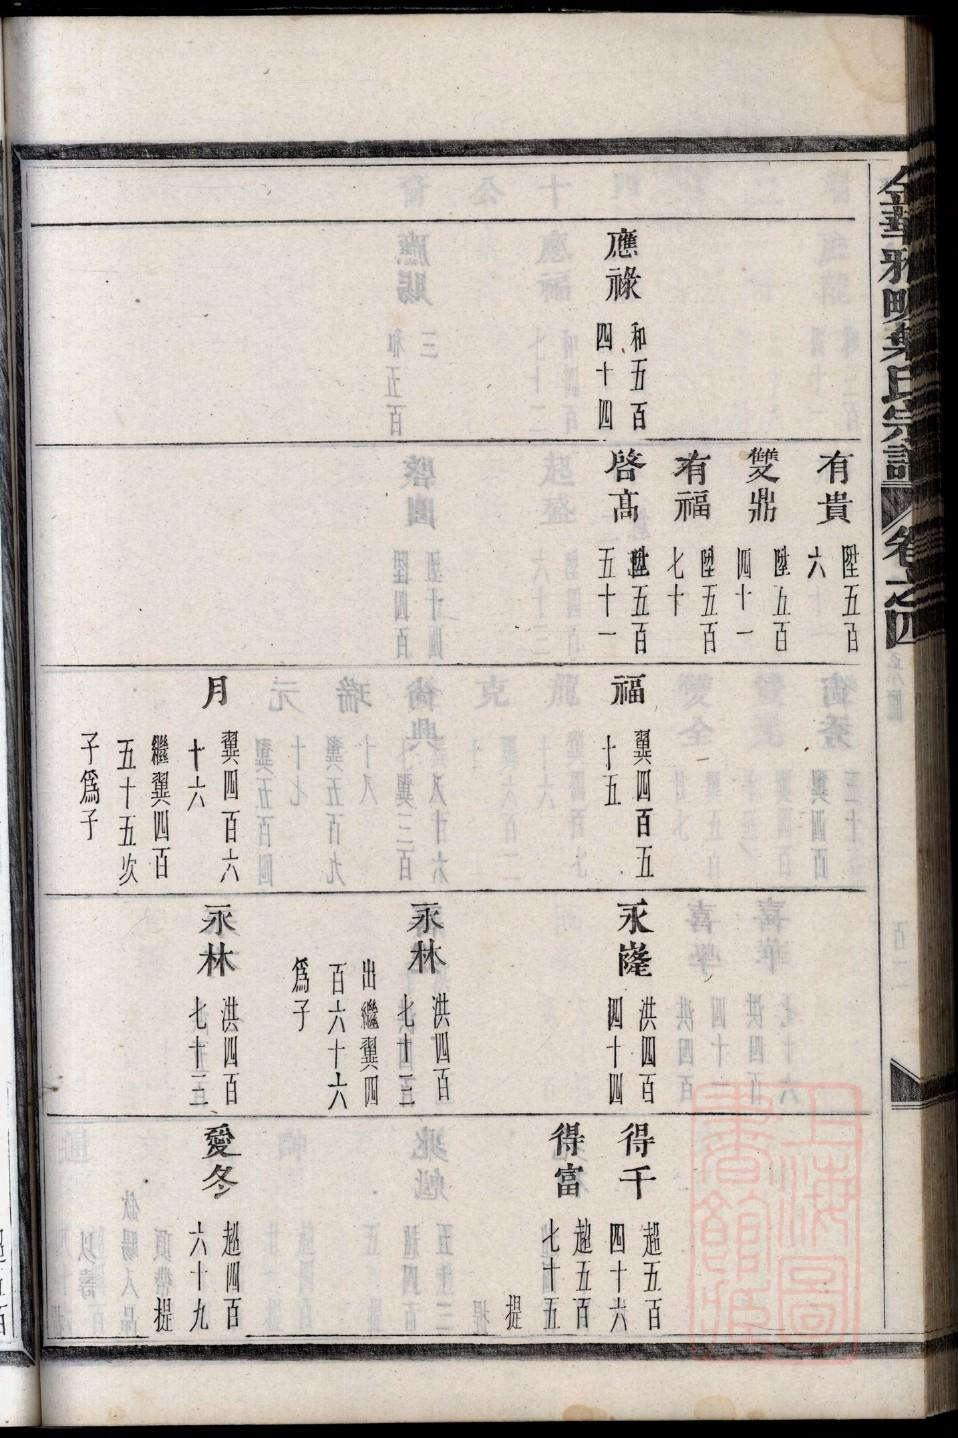 金華雅畈葉氏宗譜
卷之四
應祿
和五百
四十四
有貴
陞五百
六
雙鼎
陞五百
四十一
有福
陞五百
七十
啓高
陞五百
五十一
福
翼四百五
十五
月
翼四百六
十六
繼翼四百
五十五次
子爲子
永嶐
洪四百
四十四
永林
洪四百
七十三
出繼翼四
百六十六
爲子
永林
洪四百
七十三
得千
趙五百
四十六
得富
趙五百
七十五
提
愛冬
趙四百
六十九
提